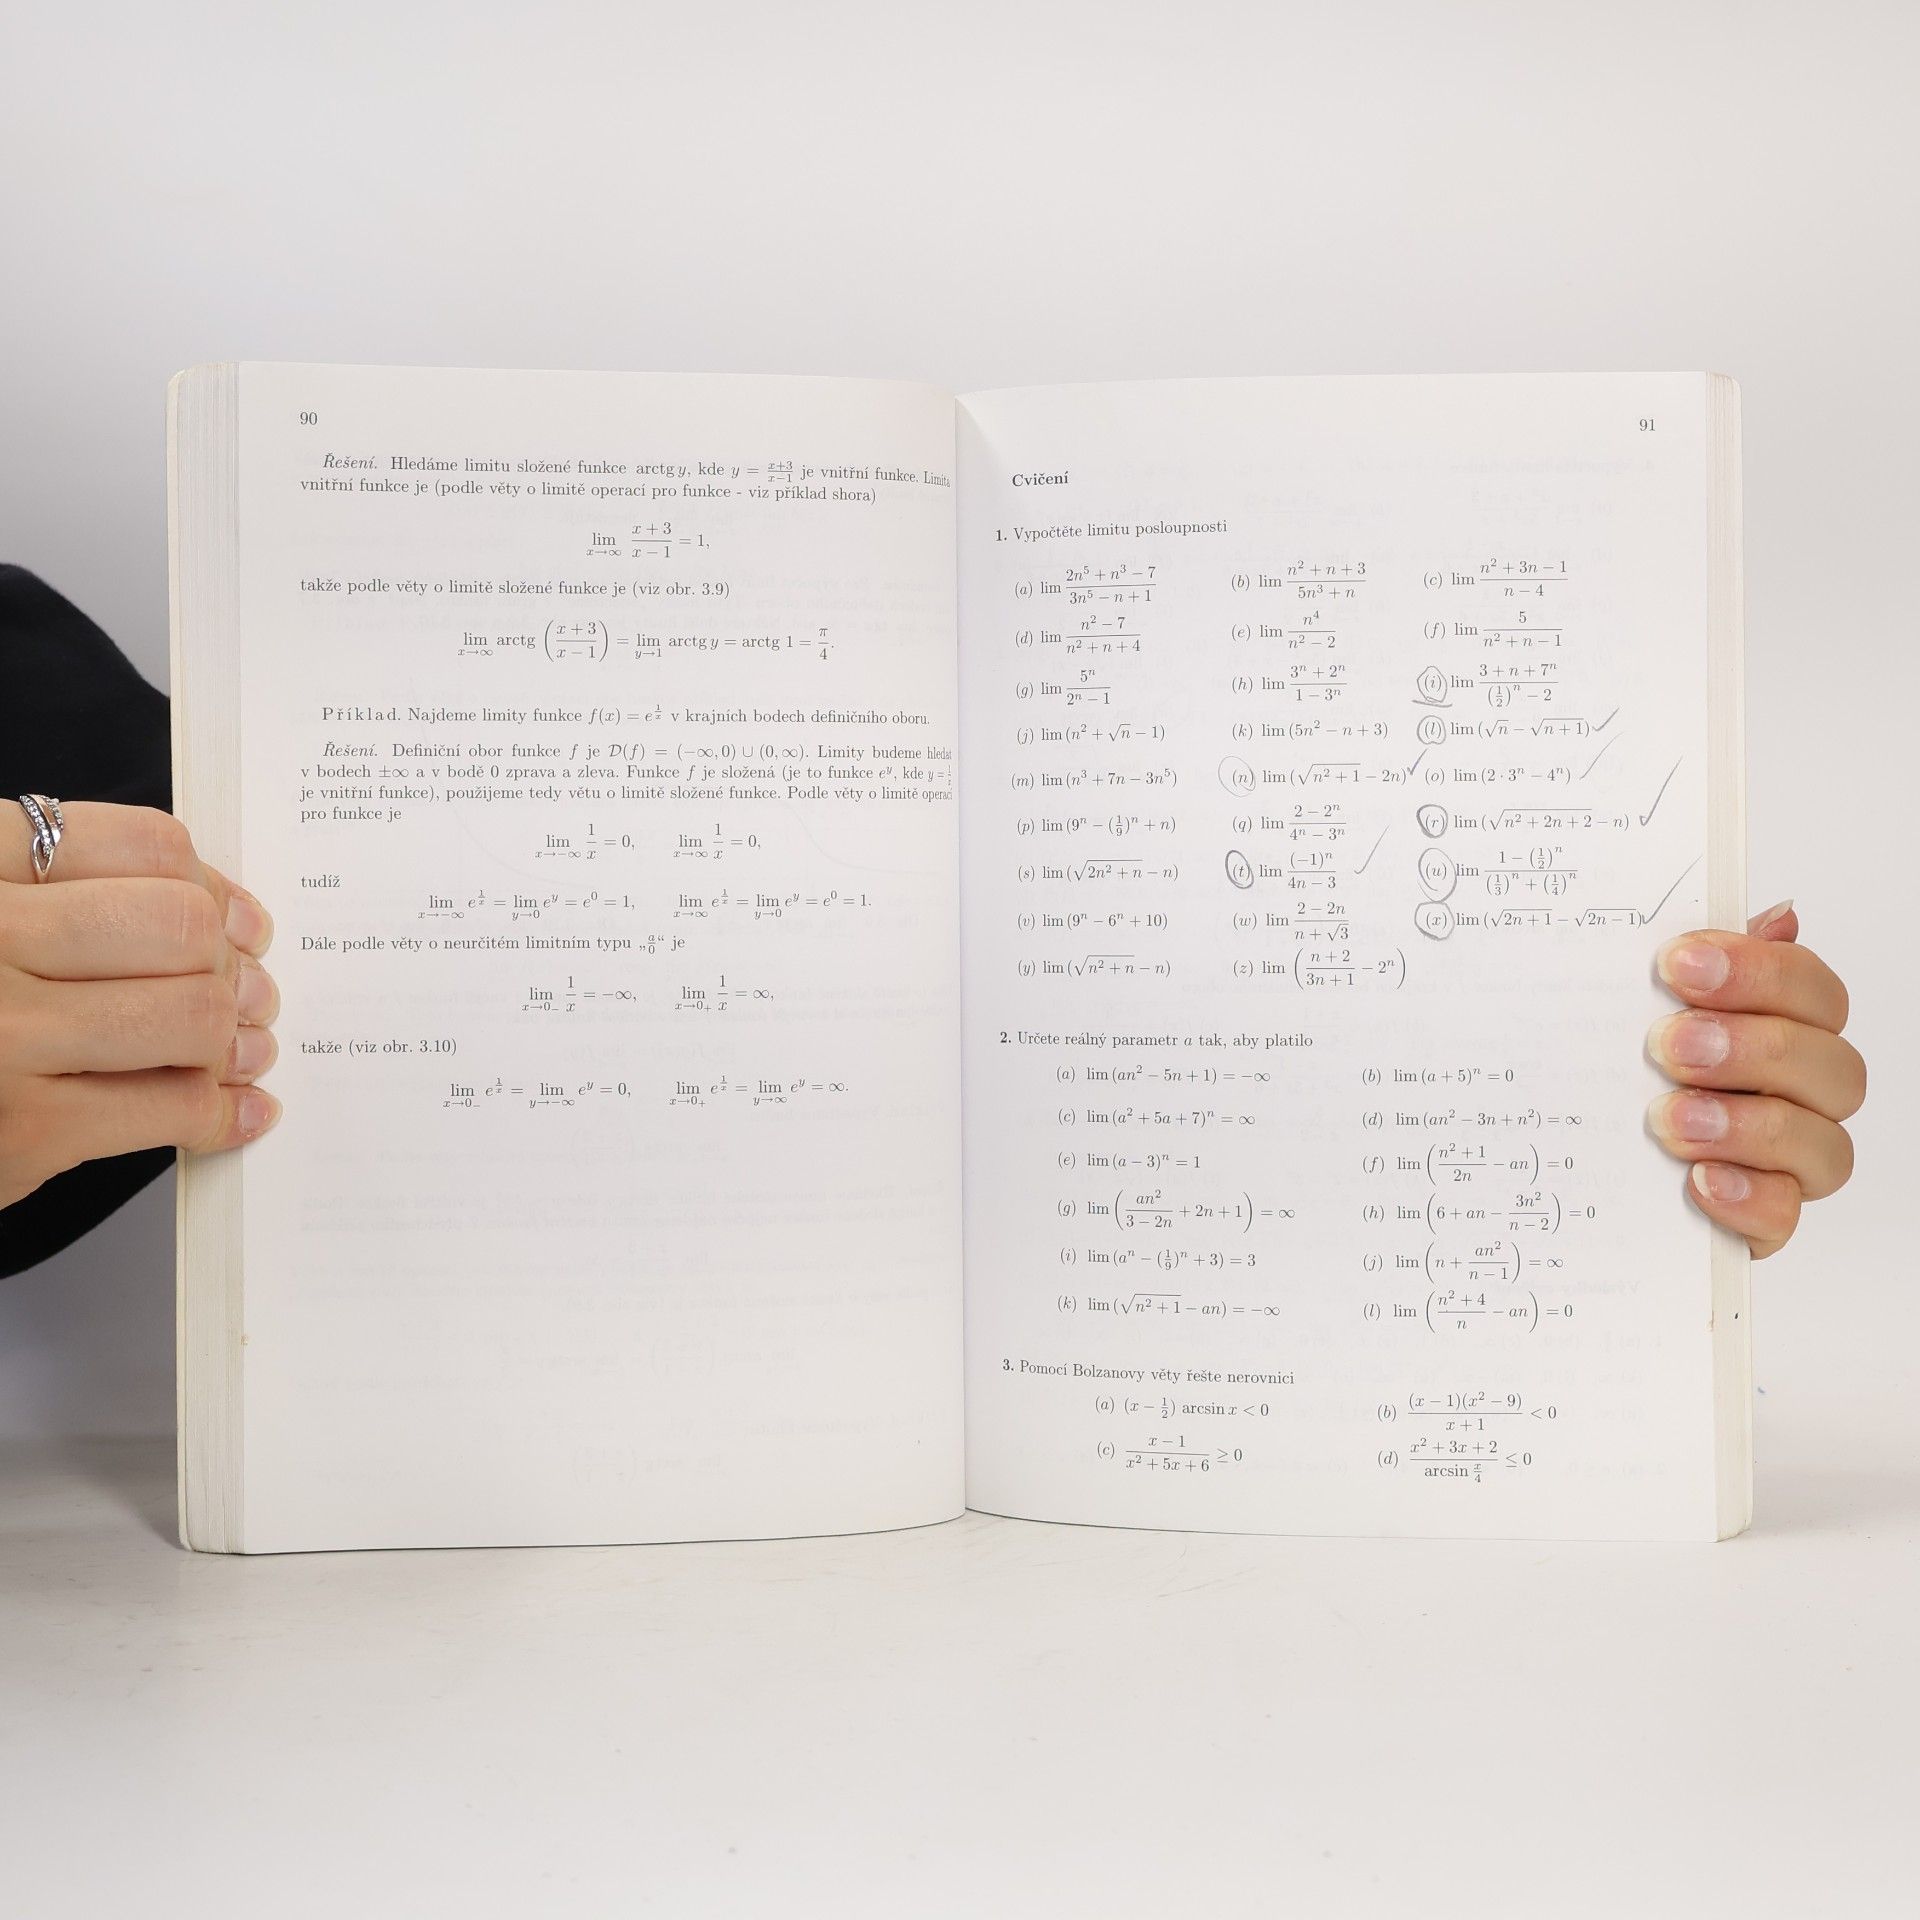 90
Řešení. Hledáme limitu složené funkce arctg y, kde y = \frac{x+3}{x-1} je vnitřní funkce. Limita
vnitřní funkce je (podle věty o limitě operací pro funkce - viz příklad shora)
\lim_{x→∞} \frac{x+3}{x-1} = 1,
takže podle věty o limitě složené funkce je (viz obr. 3.9)
\lim_{x→∞} arctg (\frac{x+3}{x-1}) = \lim_{y→1} arctg y = arctg 1 = \frac{π}{4}.
Příklad. Najdeme limity funkce f(x) = e^{\frac{1}{x}} v krajních bodech definičního oboru.
Řešení. Definiční obor funkce f je D(f) = (−∞, 0) ∪ (0, ∞). Limity budeme hledat
v bodech ±∞ a v bodě 0 zprava a zleva. Funkce f je složená (je to funkce e^y, kde y = \frac{1}{x}
je vnitřní funkce), použijeme tedy větu o limitě složené funkce. Podle věty o limitě operací
pro funkce je
\lim_{x→−∞} \frac{1}{x} = 0, \lim_{x→∞} \frac{1}{x} = 0,
tudíž
\lim_{x→−∞} e^{\frac{1}{x}} = \lim_{y→0} e^y = e^0 = 1, \lim_{x→∞} e^{\frac{1}{x}} = \lim_{y→0} e^y = e^0 = 1.
Dále podle věty o neurčitém limitním typu „\frac{a}{0}“ je
\lim_{x→0_−} \frac{1}{x} = −∞, \lim_{x→0_+} \frac{1}{x} = ∞,
takže (viz obr. 3.10)
\lim_{x→0_−} e^{\frac{1}{x}} = \lim_{y→−∞} e^y = 0, \lim_{x→0_+} e^{\frac{1}{x}} = \lim_{y→∞} e^y = ∞.
91
Cvičení
1. Vypočtěte limitu posloupnosti
(a) lim \frac{2n^5 + n^3 − 7}{3n^5 − n + 1} (b) lim \frac{n^2 + n + 3}{5n^3 + n} (c) lim \frac{n^2 + 3n − 1}{n − 4}
(d) lim \frac{n^2 − 7}{n^2 + n + 4} (e) lim \frac{n^4}{n^2 − 2} (f) lim \frac{5}{n^2 + n − 1}
(g) lim \frac{5^n}{2^n − 1} (h) lim \frac{3^n + 2^n}{1 − 3^n} (i) lim \frac{3 + n + 7^n}{(\frac{1}{2})^n − 2}
(j) lim (n^2 + √n − 1) (k) lim (5n^2 − n + 3) (l) lim (√n − √{n + 1})
(m) lim (n^3 + 7n − 3n^5) (n) lim (√{n^2 + 1} − 2n) (o) lim (2 · 3^n − 4^n)
(p) lim (9^n − (\frac{1}{9})^n + n) (q) lim \frac{2 − 2^n}{4^n − 3^n} (r) lim (√{n^2 + 2n + 2} − n)
(s) lim (√{2n^2 + n} − n) (t) lim \frac{(−1)^n}{4n − 3} (u) lim \frac{1 − (\frac{1}{2})^n}{(\frac{1}{3})^n + (\frac{1}{4})^n}
(v) lim (9^n − 6^n + 10) (w) lim \frac{2 − 2n}{n + √3} (x) lim (√{2n + 1} − √{2n − 1})
(y) lim (√{n^2 + n} − n) (z) lim (\frac{n + 2}{3n + 1} − 2^n)
2. Určete reálný parametr a tak, aby platilo
(a) lim (an^2 − 5n + 1) = −∞ (b) lim (a + 5)^n = 0
(c) lim (a^2 + 5a + 7)^n = ∞ (d) lim (an^2 − 3n + n^2) = ∞
(e) lim (a − 3)^n = 1 (f) lim (\frac{n^2 + 1}{2n} − an) = 0
(g) lim (\frac{an^2}{3 − 2n} + 2n + 1) = ∞ (h) lim (6 + an − \frac{3n^2}{n − 2}) = 0
(i) lim (a^n − (\frac{1}{9})^n + 3) = 3 (j) lim (n + \frac{an^2}{n − 1}) = ∞
(k) lim (√{n^2 + 1} − an) = −∞ (l) lim (\frac{n^2 + 4}{n} − an) = 0
3. Pomocí Bolzanovy věty řešte nerovnici
(a) (x − \frac{1}{2}) arcsin x < 0 (b) \frac{(x − 1)(x^2 − 9)}{x + 1} < 0
(c) \frac{x − 1}{x^2 + 5x + 6} ≥ 0 (d) \frac{x^2 + 3x + 2}{arcsin \frac{x}{4}} ≤ 0